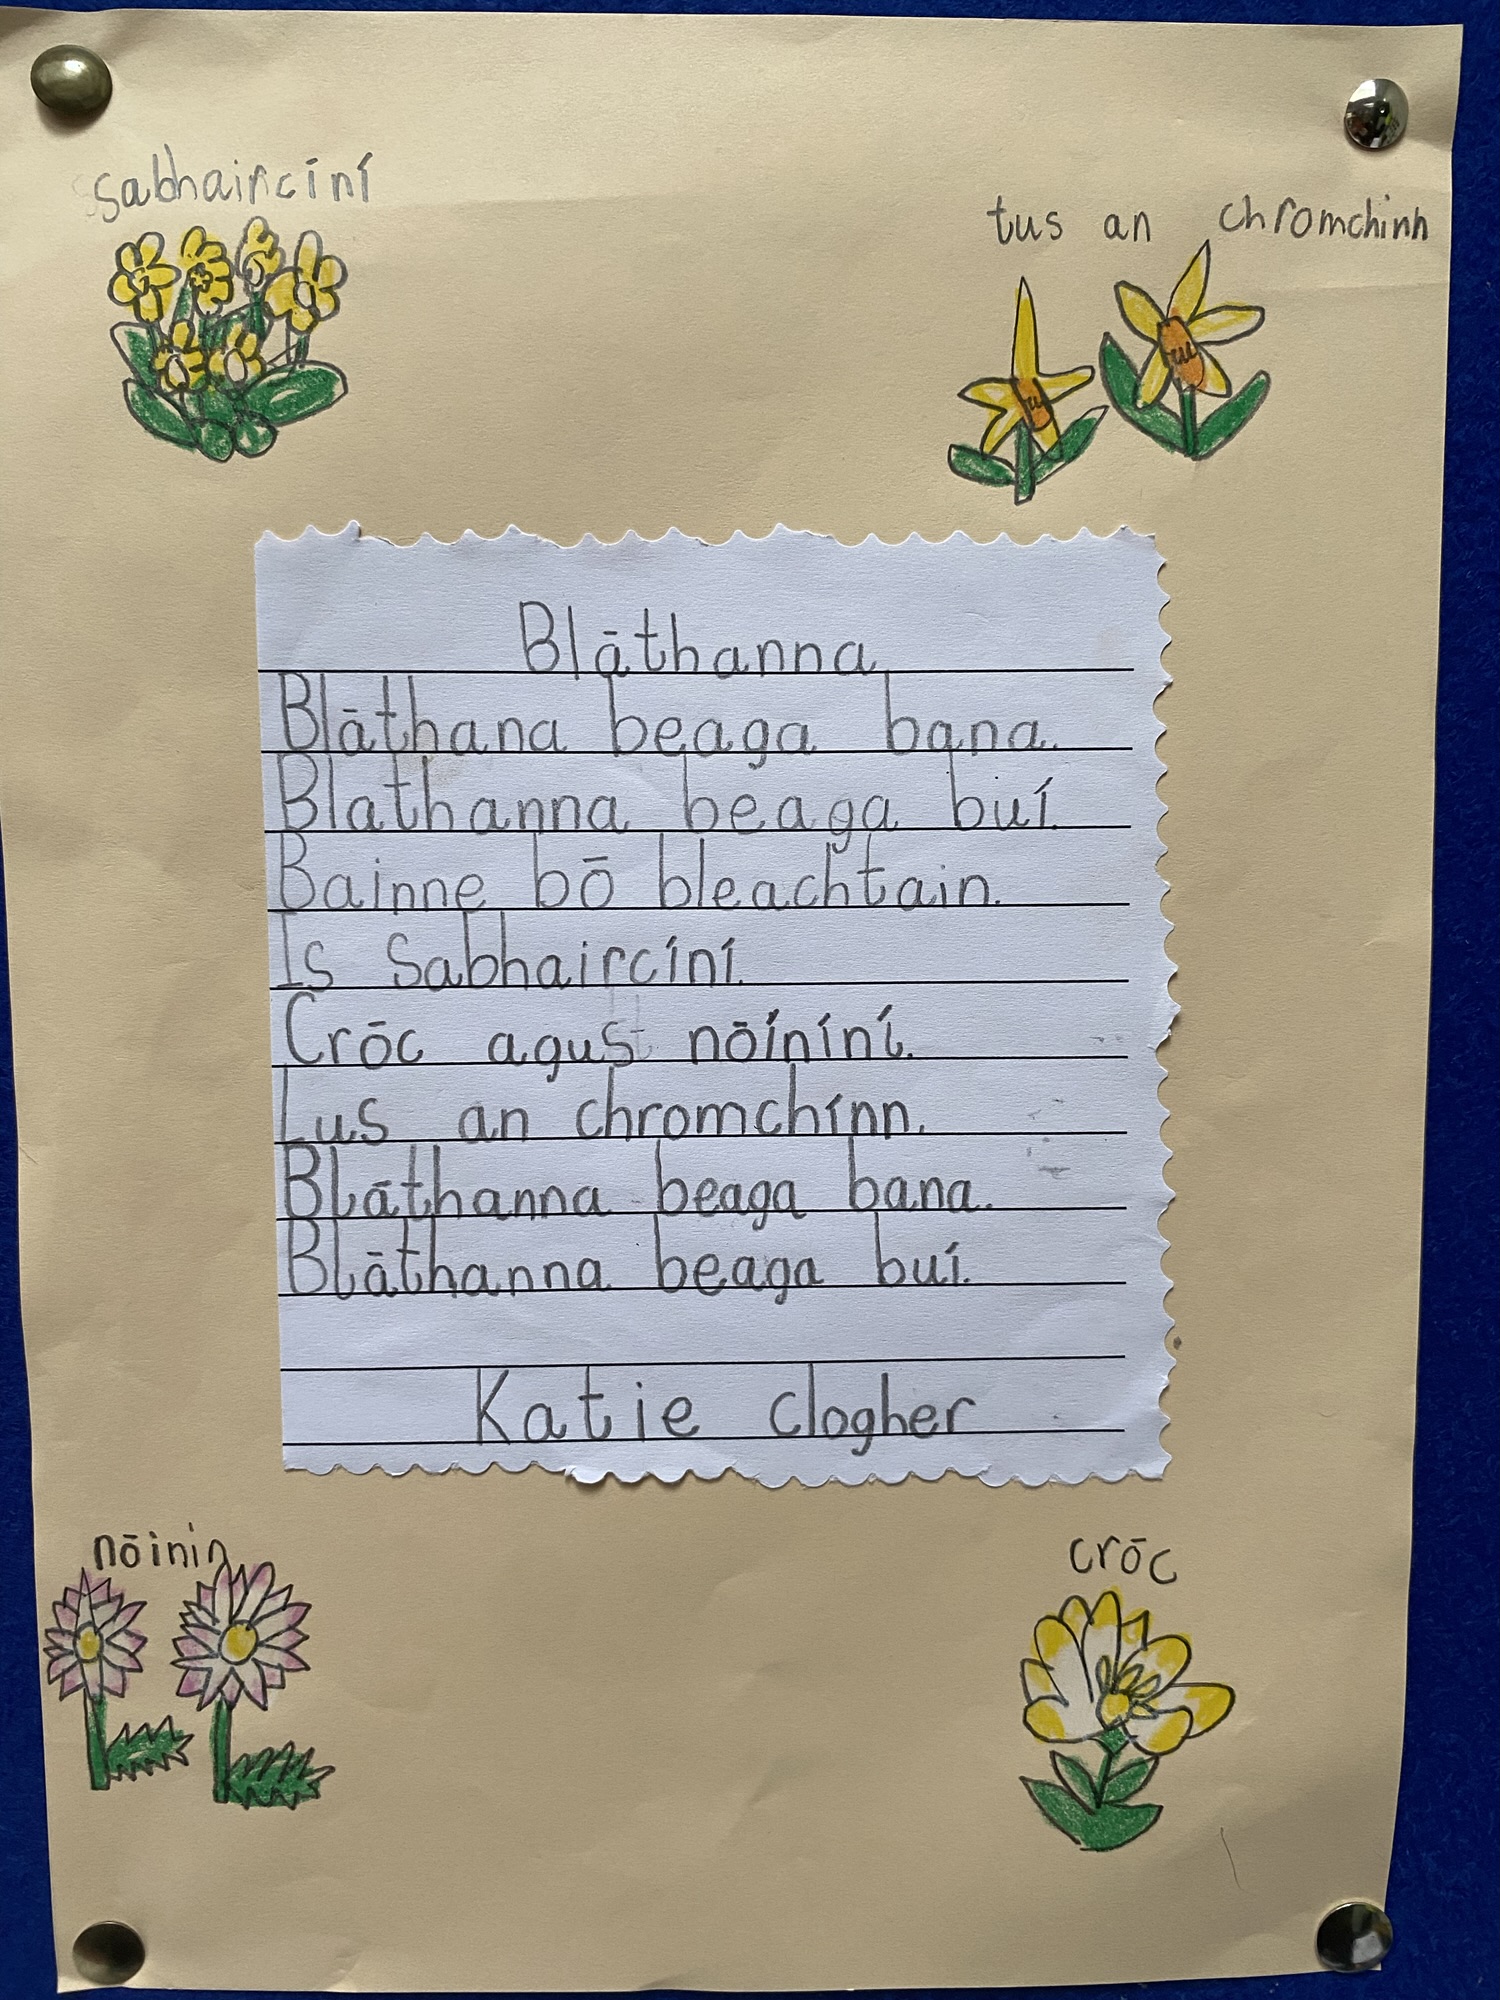 sabhaircíní
tus an chromchinn
Blāthanna
Blāthana beaga bana.
Blathanna beaga buí.
Bainne bō bleachtain.
Is Sabhaircíní.
Crōc agus nōíníní.
Lus an chromchínn.
Blāthanna beaga bana.
Blāthanna beaga buí.
Katie clogher
nōinin
crōc